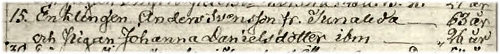 15. Enklingen Anders Svensson fr. Tunalida — 63 år
och Pigan Johanna Danielsdotter ibm — 26 år